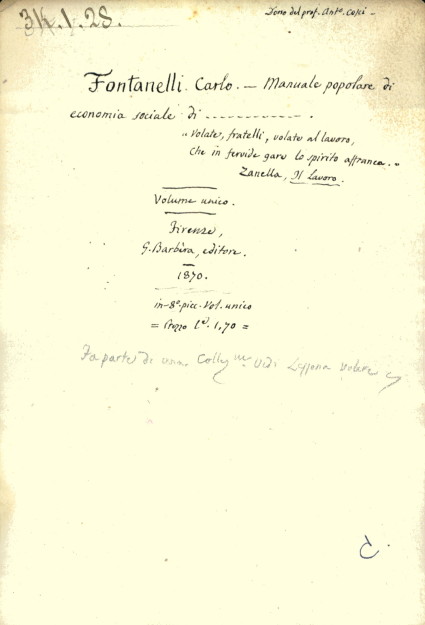 34.1.28.
Dono del prof. Ant.º Cosci –
Fontanelli Carlo. – Manuale popolare di
economia sociale di ------------ .
"Volate, fratelli, volate al lavoro,
Che in fervide gare lo spirito affranca."
Zanella, Il Lavoro.
Volume unico.
Firenze,
G. Barbèra, editore.
1870.
in-8º picc. Vol. unico
= Prezzo 1,70 =
Fa parte di una Vedi Lessona Volere